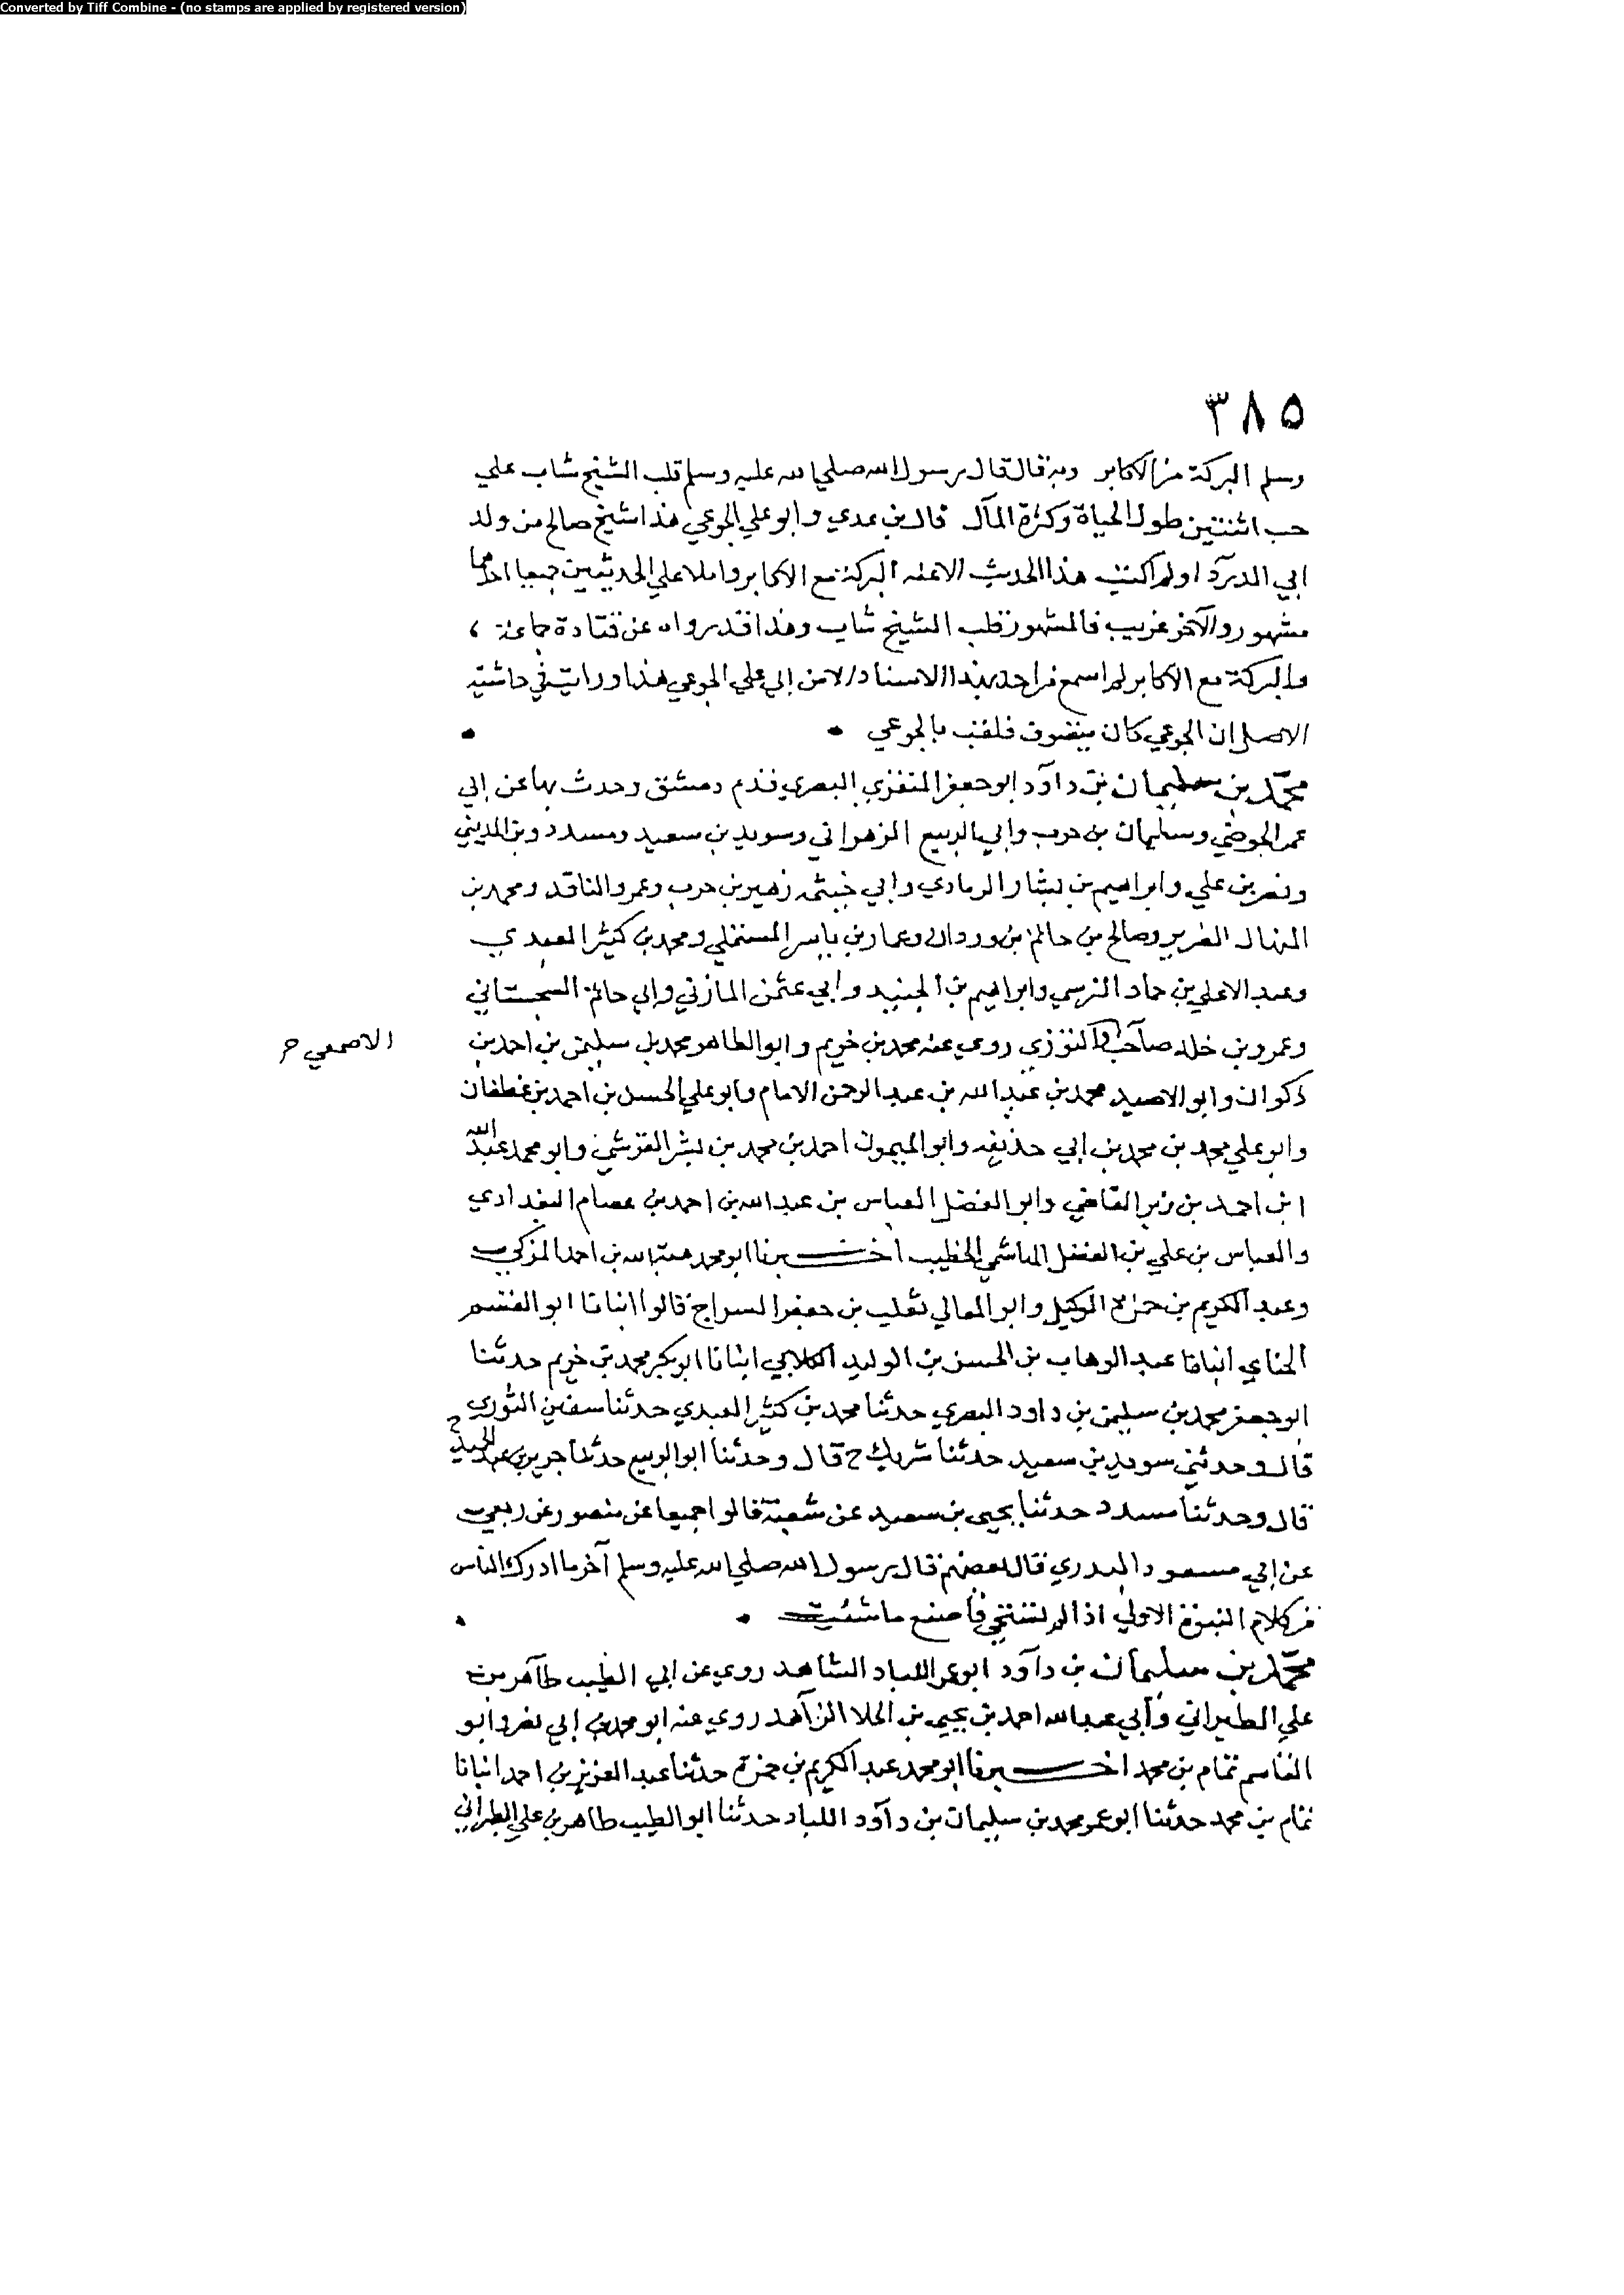 Converted by Tiff Combine - (no stamps are applied by registered version)
٣٨٥
وسلم البركة من الاكابر وبه قال قال رسول الله صلي الله عليه وسلم قلب الشيخ شاب علي
حب اثنتين طول الحياة وكثرة المال قال بن عدي وابو علي الجوعي هذا شيخ صالح من ولد
ابي الدرداء ولم اكتب هذا الحديث الا عنه البركة مع الاكابر واملا علي الحديثين جميعا احدهما
مشهور والآخر غريب فالمشهور قلب الشيخ شاب وهذا قد رواه عن قتادة جماعة ،
والبركة مع الاكابر لم اسمع من احد بهذا الاسناد الا من ابي علي الجوعي هذا ورايت في حاشية
الاصل ان الجوعي كان يتصوف فلقب بالجوعي
محمد بن سليمان بن داود ابو جعفر المنقري البصري قدم دمشق وحدث بها عن ابي
عمر الحوضي وسليمان بن حرب وابي الربيع الزهراني وسويد بن سعيد ومسدد وبن المديني
ونصر بن علي وابراهيم بن بشار الرمادي وابي خيثمه زهير بن حرب وعمرو الناقد ومحمد بن
المنهال الضرير وصالح بن حاتم بن وردان وعمار بن ياسر المستملي ومحمد بن كثير العبدي
وعبد الاعلي بن حماد النرسي وابراهيم بن الجنيد وابي عثمن المازني وابي حاتم السجستاني
وعمرو بن خلد صاحب والتوزي روي عنه محمد بن خريم وابو الطاهر محمد بن سليمن بن احمد بن
الاصمعي م
ذكوان وابو الاصيد محمد بن عبد الله بن عبد الرحمن الامام وابو علي الحسن بن احمد بن غطفان
وابو علي محمد بن محمد بن ابي حذيفه وابو الميمون احمد بن محمد بن بشر القرشي وابو محمد عبد الله
ابن احمد بن زبر القاضي وابو الفضل العباس بن عبد الله بن احمد بن عصام البغدادي
والعباس بن علي بن الفضل الهاشمي الخطيب اخبرنا ابو محمد هبة الله بن احمد المزكي
وعبد الكريم بن حمزة الوكيل وابو المعالي ثعلب بن جعفر السراج قالوا انبانا ابو القسم
الحناي انبانا عبد الوهاب بن الحسن بن الوليد الكلابي انبانا ابو بكر محمد بن خريم حدثنا
ابو جعفر محمد بن سليمن بن داود البصري حدثنا محمد بن كثير العبدي حدثنا سفين الثوري ح
قال وحدثني سويد بن سعيد حدثنا شريك ح قال وحدثنا ابو الربيع حدثنا جرير بن عبد الحميد ح
قال وحدثنا مسدد حدثنا يحيى بن سعيد عن شعبة قالوا جميعا عن منصور عن ربعي
عن ابي مسعود البدري قال بعضهم قال رسول الله صلي الله عليه وسلم آخر ما ادرك الناس
من كلام النبوة الاولي اذا لم تستحي فاصنع ما شئت
محمد بن سليمان بن داود ابو عمر اللباد الشاهد روي عن ابي الطيب طاهر بن
علي الطبراني وابي عبد الله احمد بن يحيى بن الجلا الزاهد روي عنه ابو محمد بن ابي نصر وابو
القاسم تمام بن محمد اخبرنا ابو محمد عبد الكريم بن حمزة حدثنا عبد العزيز بن احمد انبانا
تمام بن محمد حدثنا ابو عمر محمد بن سليمان بن داود اللباد حدثنا ابو الطيب طاهر بن علي الطبراني